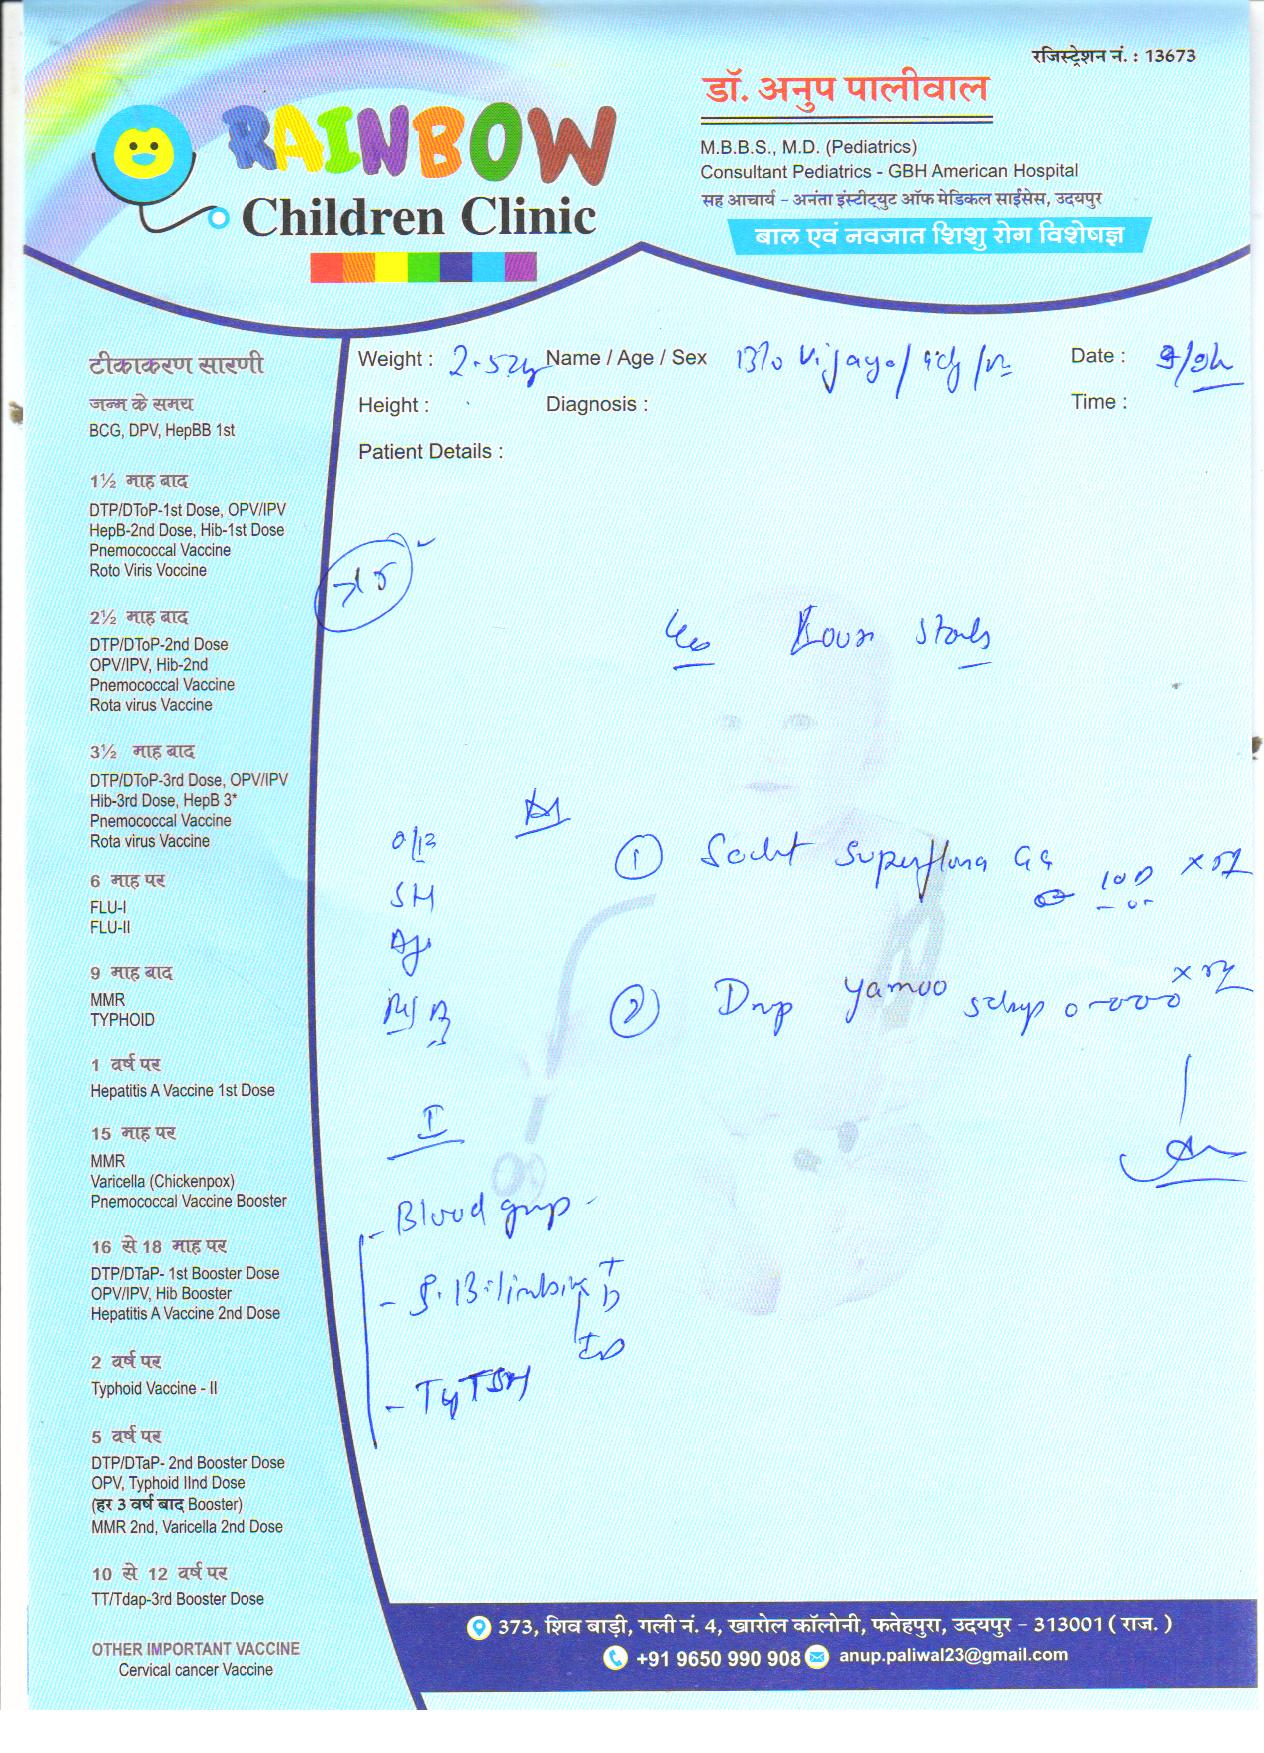 रजिस्ट्रेशन नं. : 13673
डॉ. अनुप पालीवाल
RAINBOW
Children Clinic
M.B.B.S., M.D. (Pediatrics)
Consultant Pediatrics - GBH American Hospital
सह आचार्य - अनंता इंस्टीट्युट ऑफ मेडिकल साईंसेस, उदयपुर
बाल एवं नवजात शिशु रोग विशेषज्ञ
Weight : Name / Age / Sex B/o Vijaya Date :
Height : Diagnosis : Time :
Patient Details :
टीकाकरण सारणी
जन्म के समय
BCG, DPV, HepBB 1st
1½ माह बाद
DTP/DToP-1st Dose, OPV/IPV
HepB-2nd Dose, Hib-1st Dose
Pnemococcal Vaccine
Roto Viris Voccine
2½ माह बाद
DTP/DToP-2nd Dose
OPV/IPV, Hib-2nd
Pnemococcal Vaccine
Rota virus Vaccine
3½ माह बाद
DTP/DToP-3rd Dose, OPV/IPV
Hib-3rd Dose, HepB 3*
Pnemococcal Vaccine
Rota virus Vaccine
6 माह पर
FLU-I
FLU-II
9 माह बाद
MMR
TYPHOID
1 वर्ष पर
Hepatitis A Vaccine 1st Dose
15 माह पर
MMR
Varicella (Chickenpox)
Pnemococcal Vaccine Booster
16 से 18 माह पर
DTP/DTaP- 1st Booster Dose
OPV/IPV, Hib Booster
Hepatitis A Vaccine 2nd Dose
2 वर्ष पर
Typhoid Vaccine - II
5 वर्ष पर
DTP/DTaP- 2nd Booster Dose
OPV, Typhoid IInd Dose
(हर 3 वर्ष बाद Booster)
MMR 2nd, Varicella 2nd Dose
10 से 12 वर्ष पर
TT/Tdap-3rd Booster Dose
OTHER IMPORTANT VACCINE
Cervical cancer Vaccine
c/o stools
① Superflora GG
② Drop Yamoo
I
- Blood group -
- S. Bilirubin T
D
ID
- T4 TSH
373, शिव बाड़ी, गली नं. 4, खारोल कॉलोनी, फतेहपुरा, उदयपुर - 313001 ( राज. )
+91 9650 990 908 anup.paliwal23@gmail.com